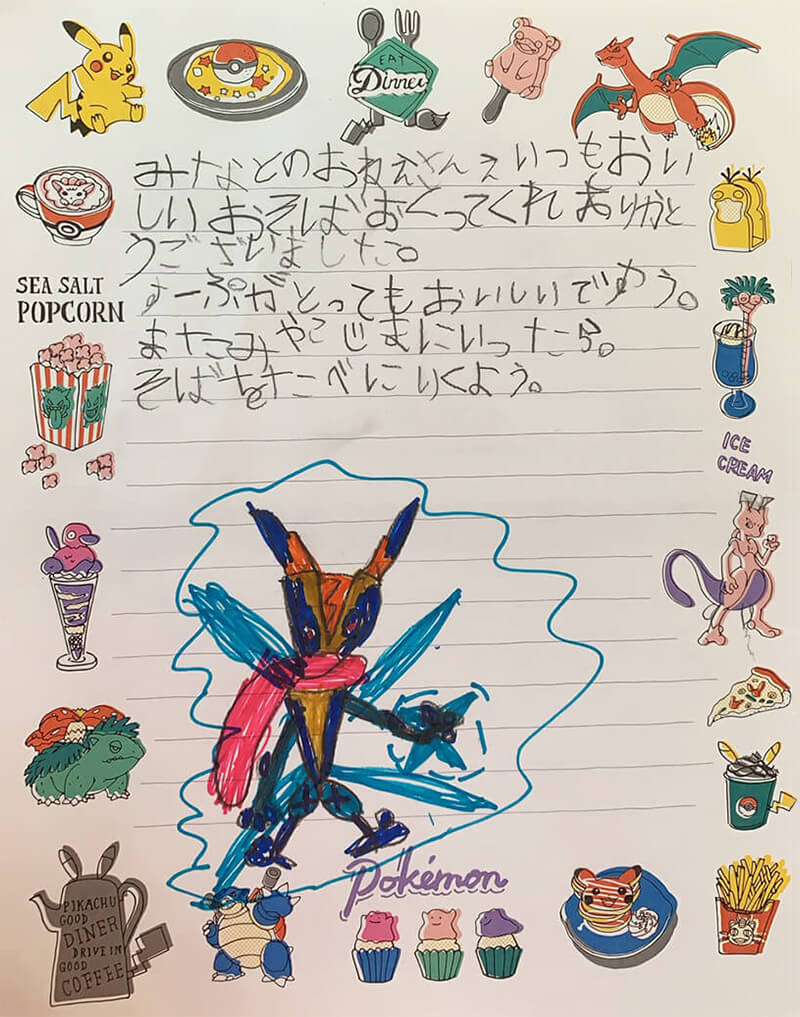 EAT
Dinner
みなとのおねえさんぇいつもおい
しいおそばおくってくれありがと
うございました。
SEA SALT
POPCORN
すーぷがとってもおいしいでゆう。
またみやこじまにいったら。
そばをたべにいくよう。
ICE
CREAM
Pokémon
PIKACHU
GOOD
DINER
DRIVE IN
GOOD
COFFEE